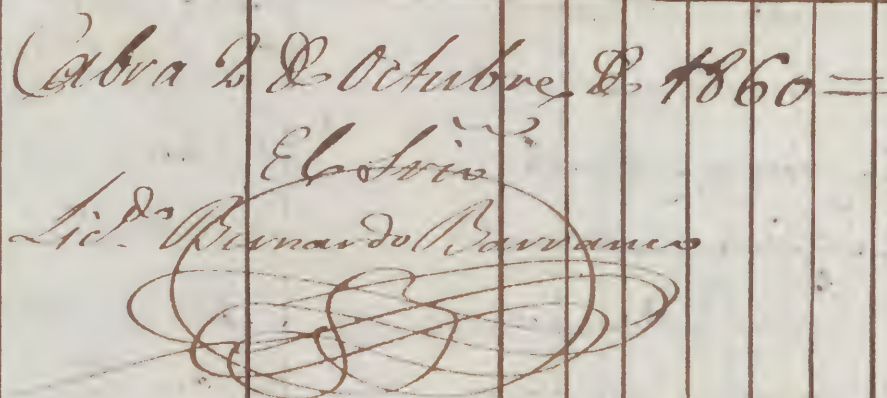 Cabra 2 de Octubre, de 1860=
El Srio
Licdo Bernardo Barranco